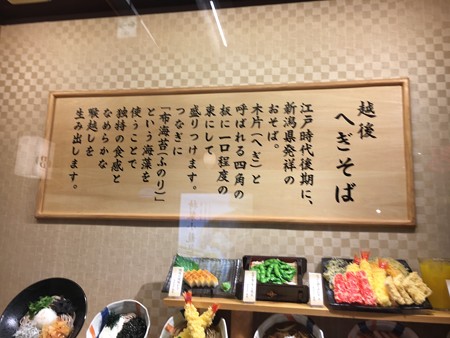 越後
へぎそば
江戸時代後期に、
新潟県発祥の
おそば。
木片(へぎ)と
呼ばれる四角の
板に一口程度の
束にして
盛りつけます。
つなぎに
「布海苔(ふのり)」
という海藻を
使うことで
独特の食感と
なめらかな
喉越しを
生み出します。